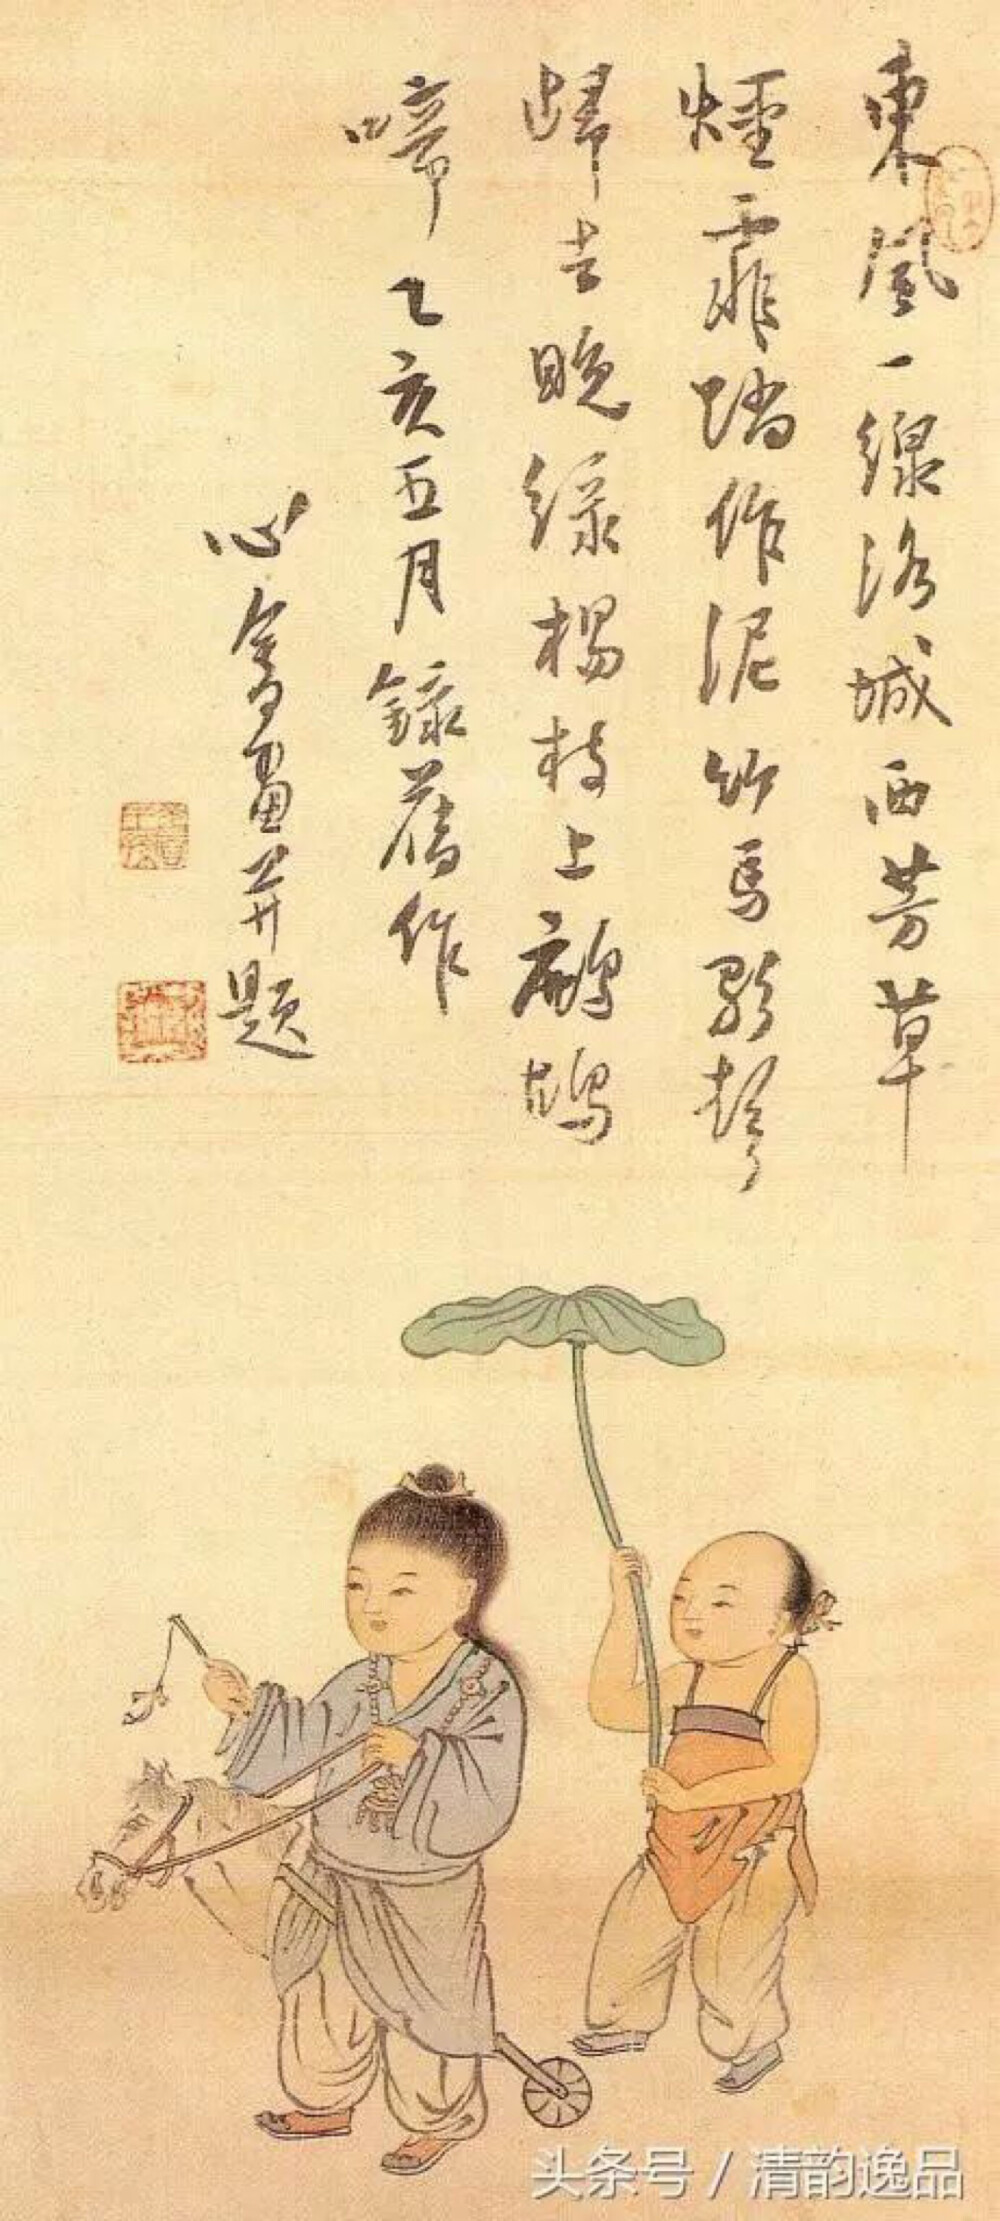 東風一線洛城西芳草
煙霏踏作泥竹馬
歸去晚綠楊枝上鷓鴣
啼乙亥五月錄舊作
心畬畫并題
头条号 / 清韵逸品